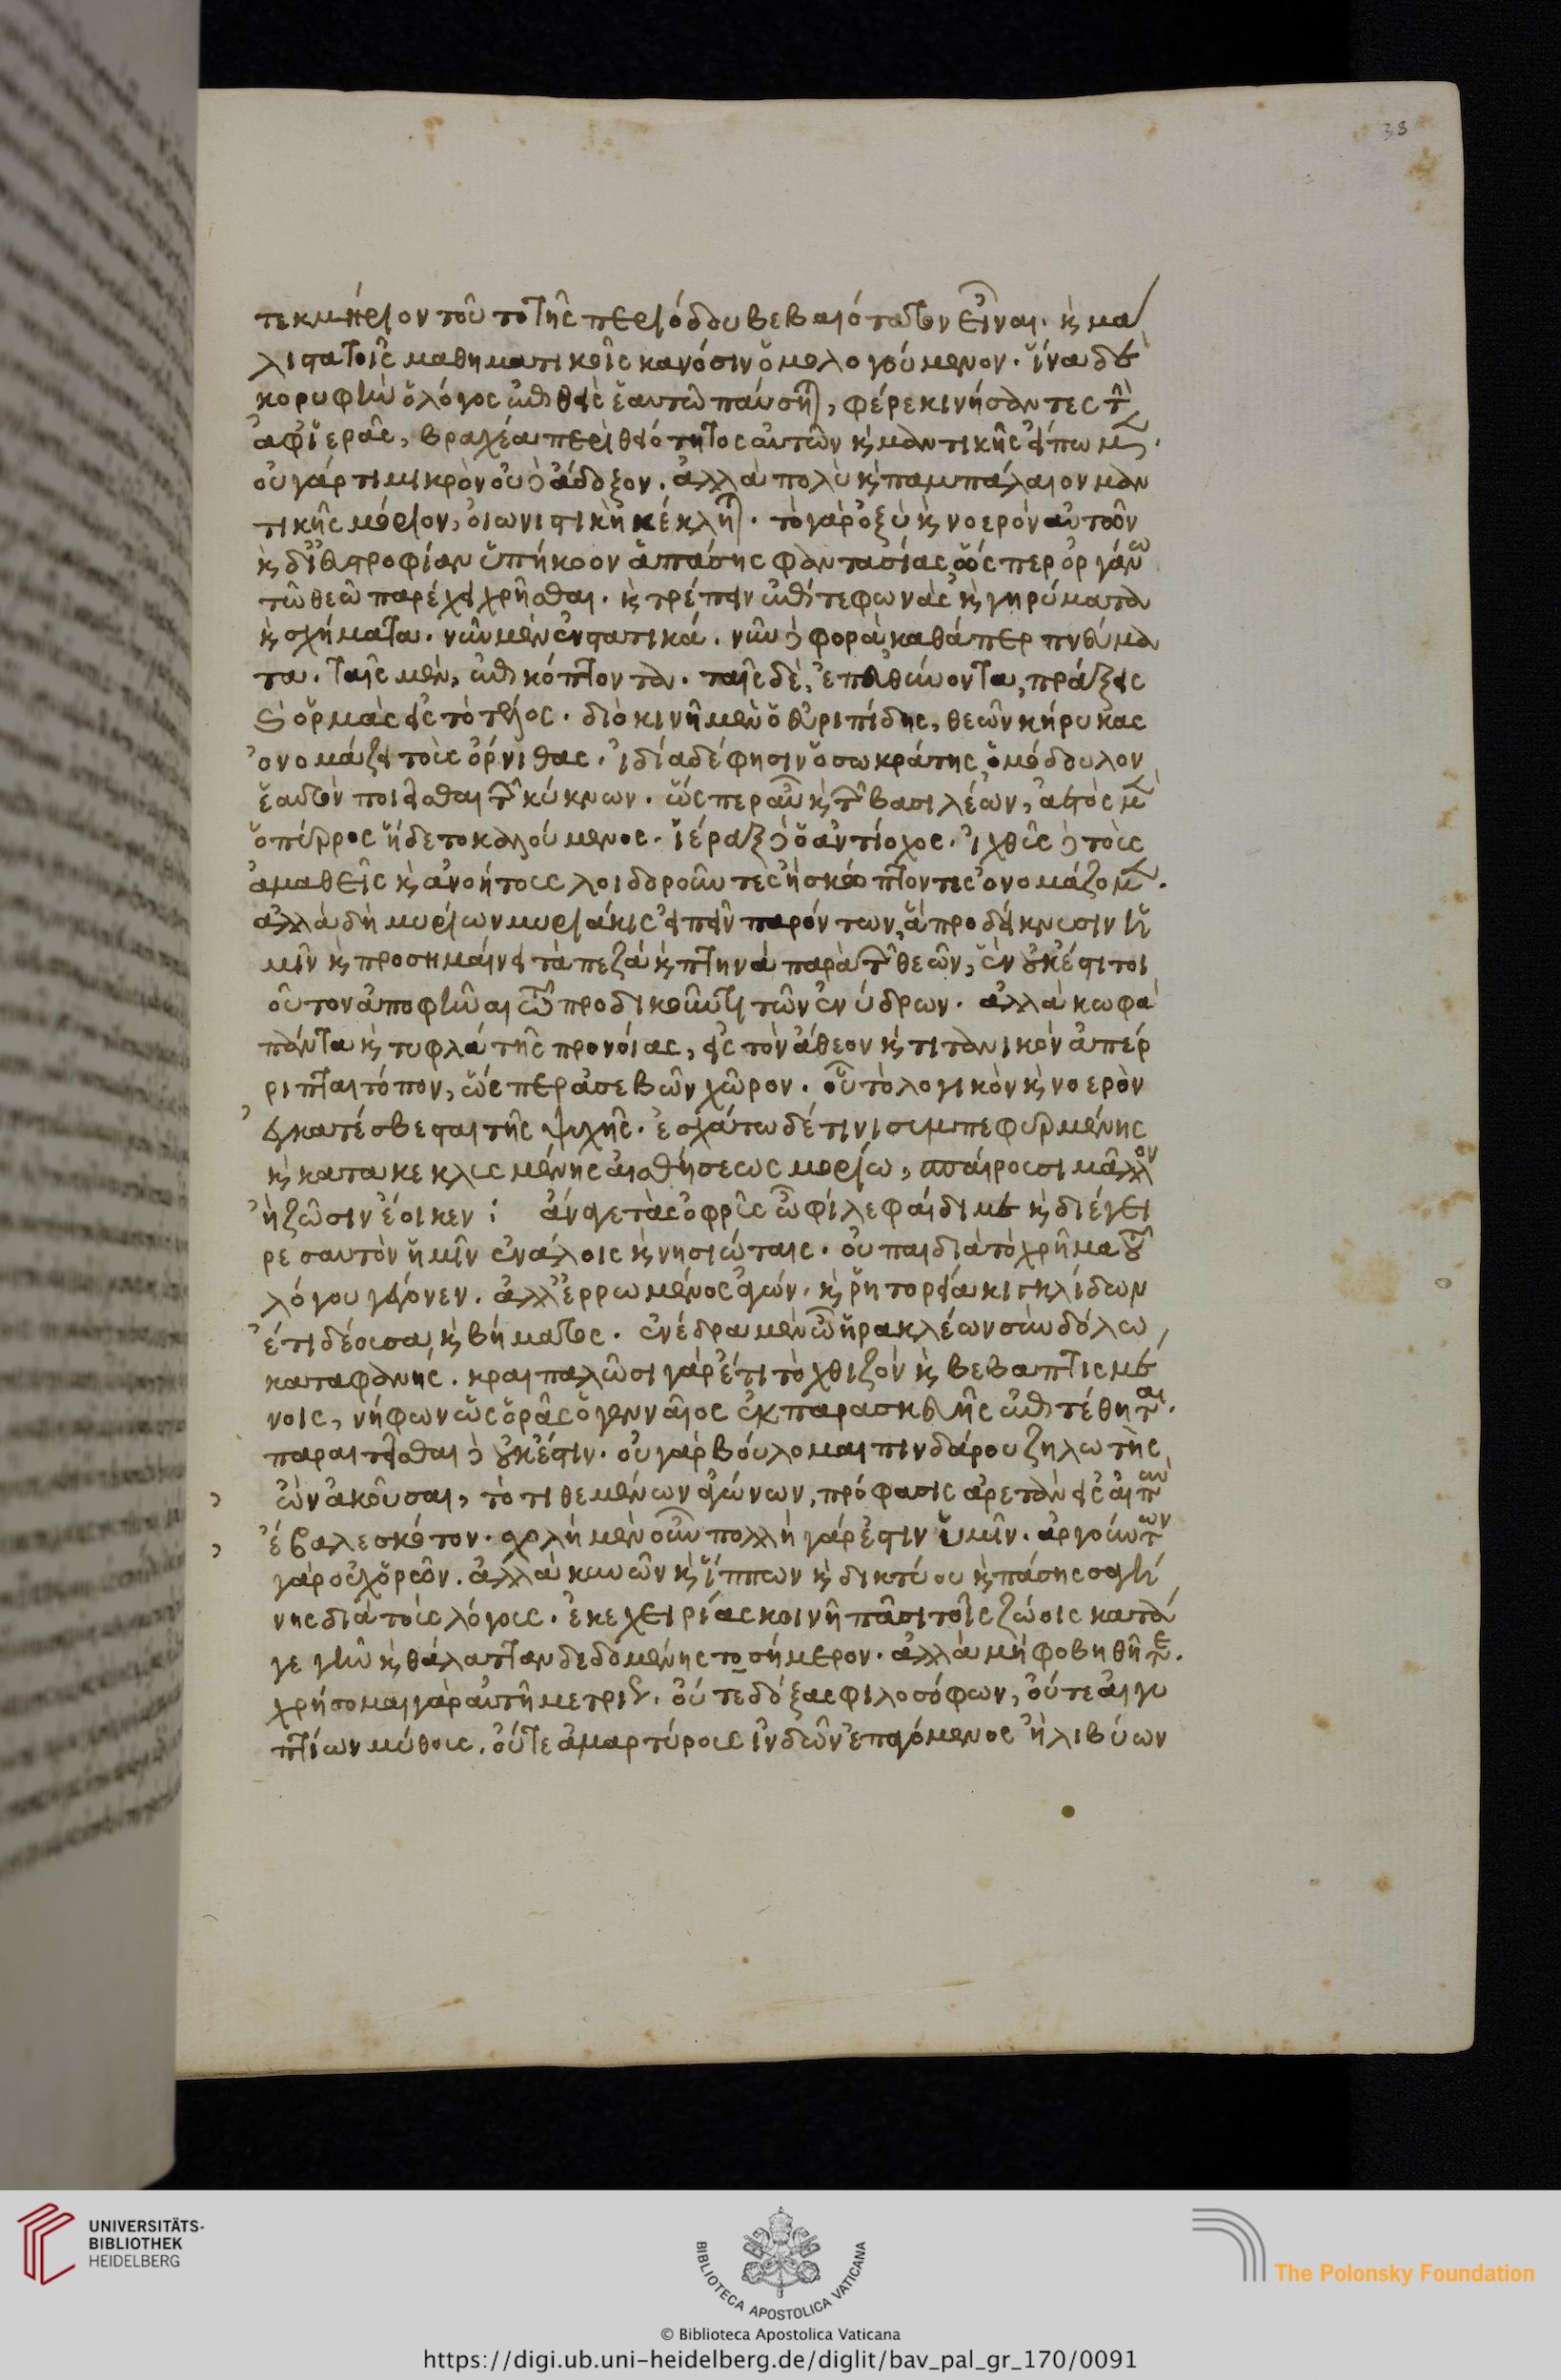 38
τεκμήριον τοῦτο τῆς περιόδου βεβαιότατον εἶναι. κὶ μά
λιστα τοῖς μαθηματικοῖς κανόσιν ὁμολογούμενον. ἵνα δὲ
κορυφὴν ὁ λόγος ἐπιθεὶς ἑαυτῶ παύσηται, φέρε κινήσαντες τὴν
ἀφ' ἱερᾶς, βραχέα περὶ θειότητος αὐτῶν κὶ μαντικῆς εἴπωμεν.
οὐ γάρ τι μικρὸν οὐδ' ἄδοξον. ἀλλὰ πολὺ κὶ παμπάλαιον μαν
τικῆς μόριον, οἰωνιστικὴ κέκληται. τὸ γὰρ ὀξὺ κὶ νοερὸν αὐτῶν
κὶ δι' εὐστροφίαν ὑπήκοον ἁπάσης φαντασίας ὥσπερ ὀργάνω
τῶ θεῶ παρέχει χρῆσθαι. κὶ τρέπειν ἐπί τε φωνὰς κὶ γηρύματα
κὶ σχήματα. νῦν μὲν ἐνστατικά. νῦν δὲ φορὰ καθάπερ πνεύμα
τα. ταῖς μὲν, ἐπικόπτοντα. ταῖς δὲ, ἐπευθύνοντα, πράξεις
κὶ ὁρμὰς εἰς τὸ τέλος. διὸ κινῆ μὲν ὁ εὐριπίδης, θεῶν κήρυκας
ὀνομάζει τοὺς ὄρνιθας. ἰδία δέ φησιν ὁ σωκράτης, ὁμόδουλον
ἑαυτὸν ποιεῖσθαι τῶν κύκνων. ὥσπερ αὖ κὶ τῶν βασιλέων, ἀετὸς μὲν
ὁ πύρρος ἥδετο καλούμενος. ἱέραξ δὲ ὁ ἀντίοχος. ἰχθῦς δὲ τοὺς
ἀμαθεῖς κὶ ἀνοήτους λοιδοροῦντες ἢ σκώπτοντες ὀνομάζομεν.
ἀλλὰ δὴ μυρίων μυριάκις εἰπεῖν παρόντων, ἃ προδείκνυσιν ἡ
μῖν κὶ προσημαίνει τὰ πεζὰ κὶ πτηνὰ παρὰ τῶν θεῶν, ἓν οὐκ ἔστι τοι
οῦτον ἀποφῆναι τῶ προδικοῦντι τῶν ἐνύδρων. ἀλλὰ κωφὰ
πάντα κὶ τυφλὰ τῆς προνοίας, εἰς τὸν ἄθεον κὶ τιτανικὸν ἀπέρ
ριπται τόπον, ὥσπερ ἀσεβῶν χῶρον. οὗ τὸ λογικὸν κὶ νοερὸν
ἐγκατέσβεσται τῆς ψυχῆς. ἐσχάτω δέ τινι συμπεφυρμένης
κὶ κατακεκλυσμένης αἰσθήσεως μορίω, σπαίρουσι μᾶλλον
ἢ ζῶσιν ἔοικεν: ἄναγε τὰς ὀφρῦς ὦ φίλε φαίδιμε κὶ διέγει
ρε σαυτὸν ἡμῖν ἐνάλοις κὶ νησιώταις. οὐ παιδιὰ τὸ χρῆμα τοῦ
λόγου γέγονεν. ἀλλ' ἐρρωμένος ἀγών. κὶ ῥητορεία κιγκλίδων
ἔτι δέουσα, κὶ βήματος. ἐνέδρα μὲν ὦ ἡρακλέων σὺν δόλω
καταφανής. κραιπαλῶσι γὰρ ἔτι τὸ χθιζὸν κὶ βεβαπτισμέ
νοις, νήφων ὡς ὁρᾶς ὁ γενναῖος ἐκ παρασκευῆς ἐπιτέθηται.
παραιτεῖσθαι δὲ οὐκ ἔστιν. οὐ γὰρ βούλομαι πινδάρου ζηλωτὴς
ὢν ἀκοῦσαι, τὸ τιθεμένων ἀγώνων, πρόφασις ἀρετὰν εἰς αἰπὺν
ἔβαλε σκότον. σχολὴ μὲν οὖν πολλὴ γάρ ἐστιν ὑμῖν. ἀργούντων
γὰρ οὐ χορεῶν. ἀλλὰ κυνῶν κὶ ἵππων κὶ δικτύου κὶ πάσης σαγή
νης διὰ τοὺς λόγους. ἐκεχειρίας κοινῆ πᾶσι τοῖς ζώοις κατά
γε γῆν κὶ θάλατταν δεδομένης το σήμερον. ἀλλὰ μὴ φοβηθῆτε.
χρήσομαι γὰρ αὐτῆ μετρίως. οὔτε δόξας φιλοσόφων, οὔτε αἰγυ
πτίων μύθους. οὔτε ἀμαρτύρους ἰνδῶν ἐπαγόμενος ἢ λιβύων
UNIVERSITÄTS-
BIBLIOTHEK
HEIDELBERG
BIBLIOTECA APOSTOLICA VATICANA
The Polonsky Foundation
© Biblioteca Apostolica Vaticana
https://digi.ub.uni-heidelberg.de/diglit/bav_pal_gr_170/0091